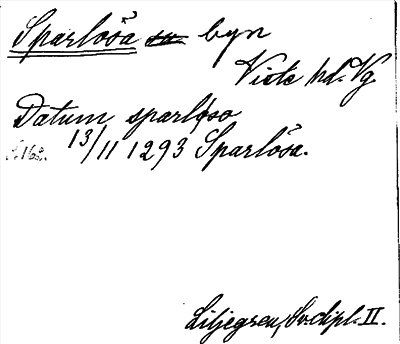 Sparlösa byn
Viste hd. Vg
Datum sparløso
13/11 1293 Sparlösa.
s. 162.
Liljegren, Sv. dipl. II.